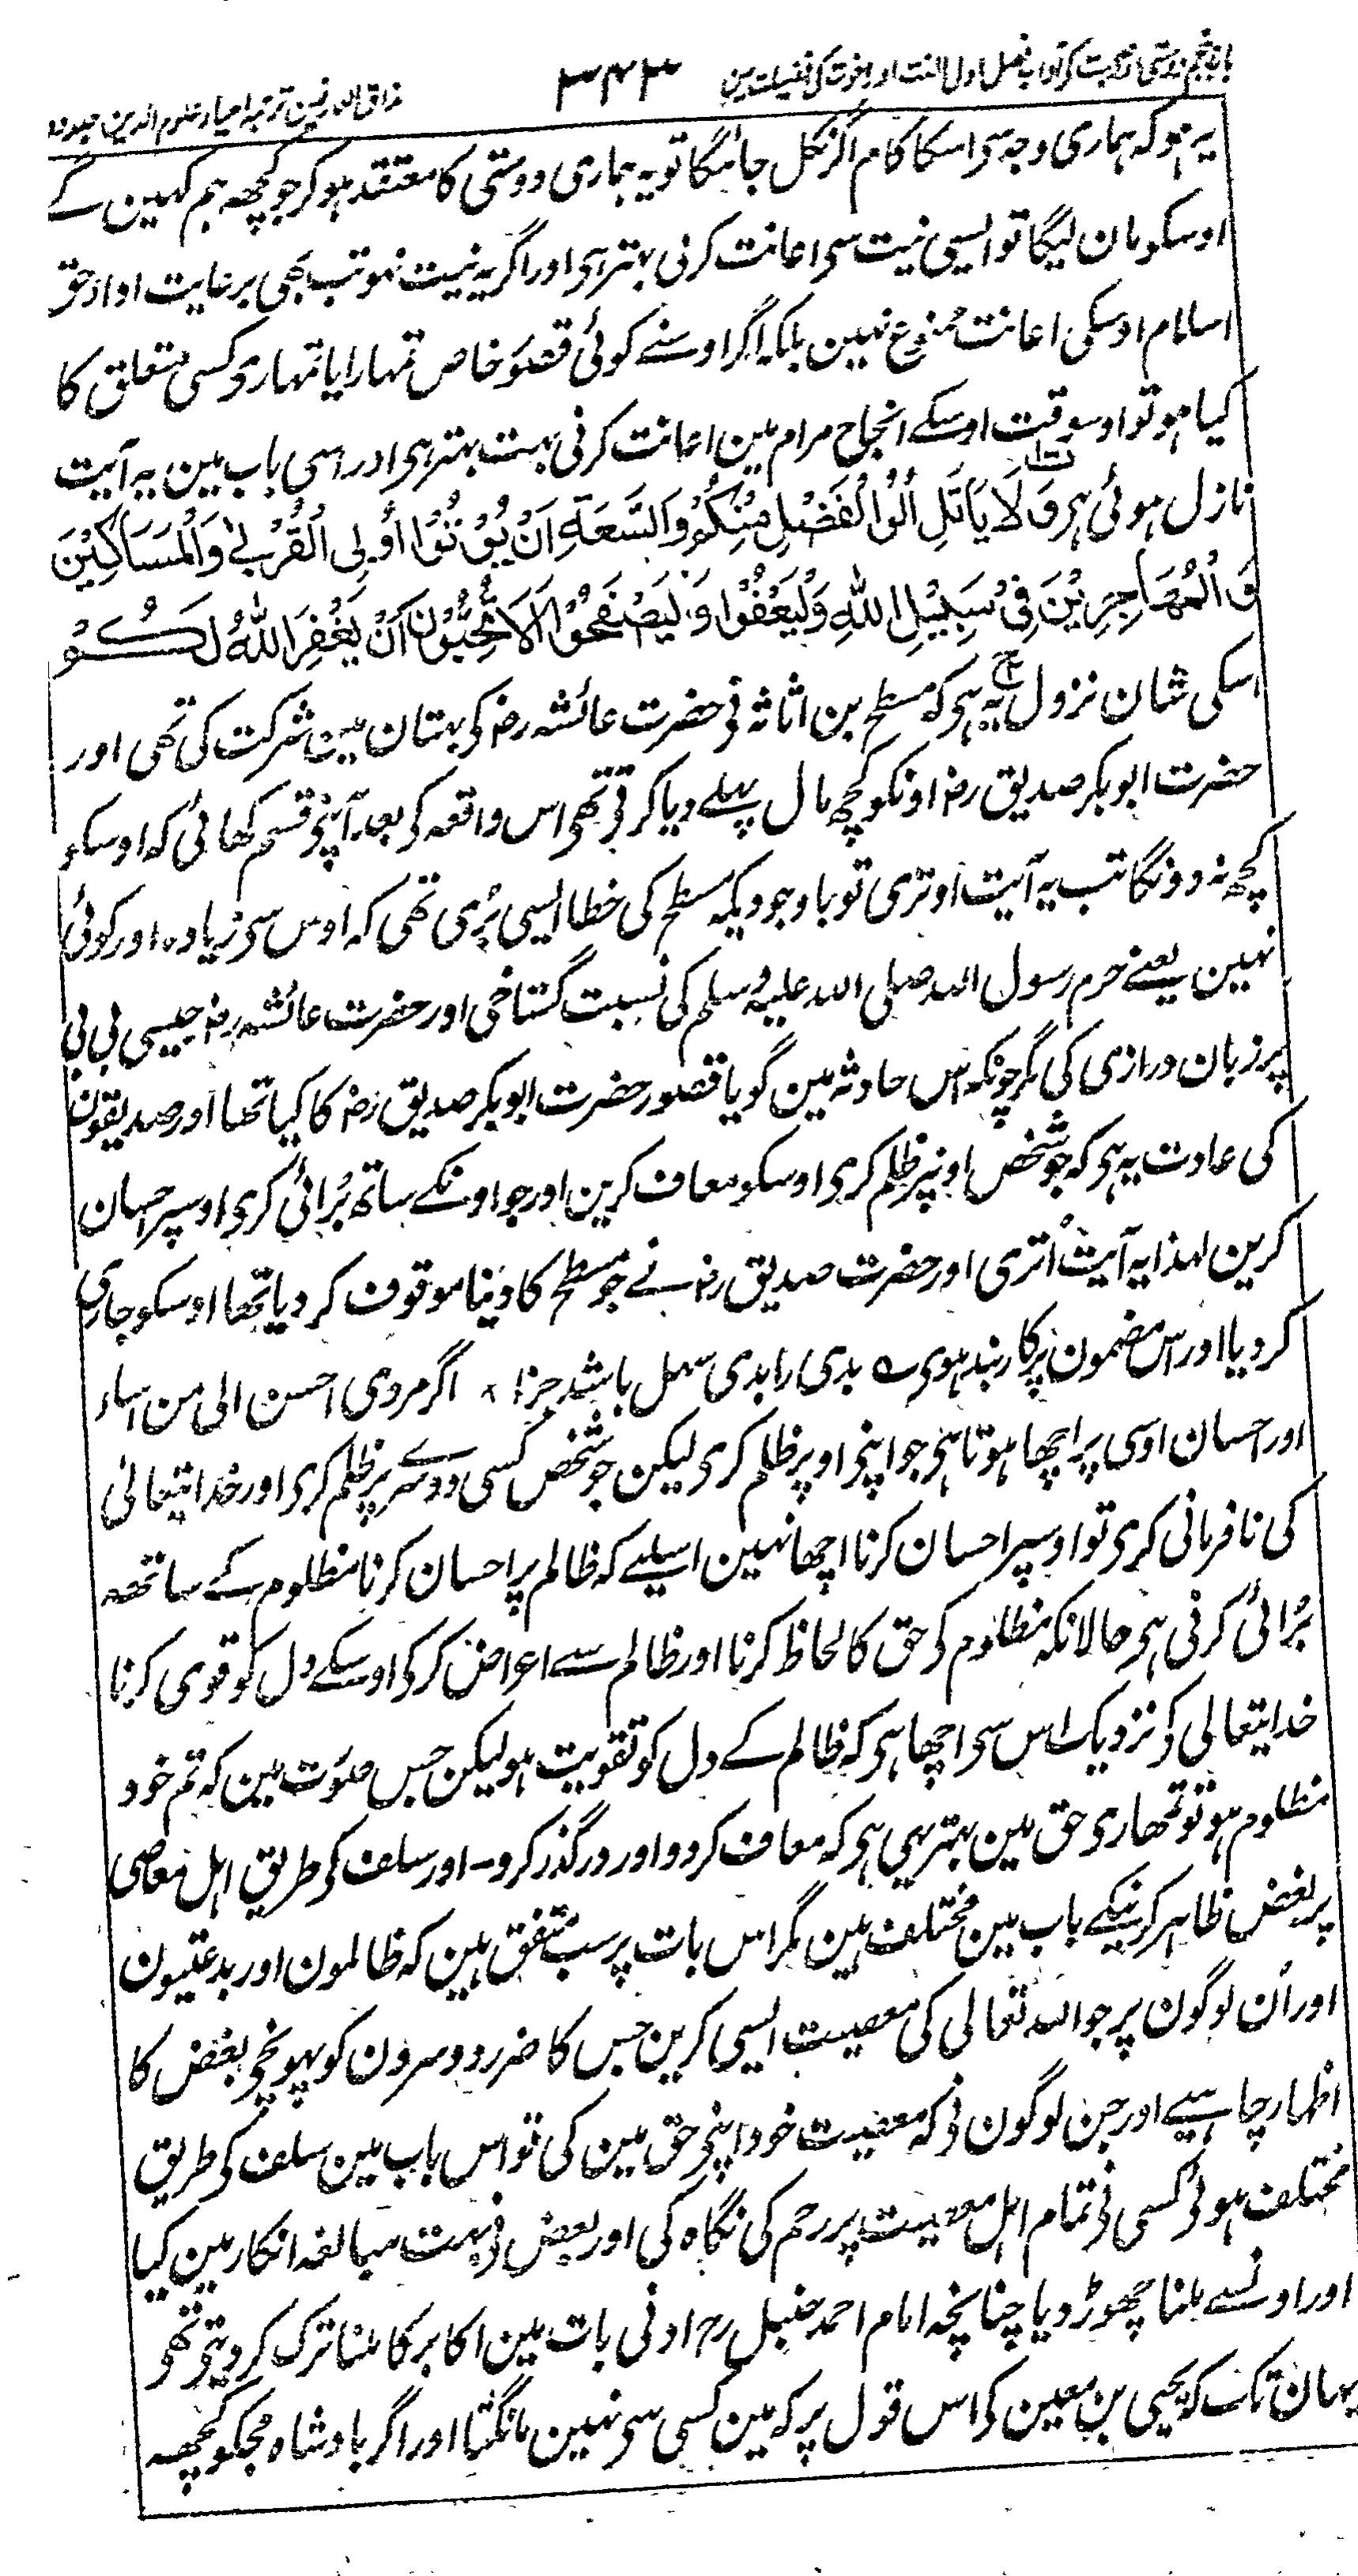 باب پنجم دوستی و صحبت کے آداب فصل اول الفت اور اخوت کی فضیلت مین ۳۴۳ مذاق العارفین ترجمہ احیاء علوم الدین جلد دوم
یہ ہو کہ ہماری وجہ سی اسکا کام اگر نکل جائیگا تو یہ ہماری دوستی کا معتقد ہو کر جو کچھ ہم کہین گے
اوسکو مان لیگا تو ایسی نیت سی اعانت کرنی بہتر ہی اور اگر یہ نیت نہو تب بھی برعایت اداء حق
اسلام اوسکی اعانت ممنوع نہین بلکہ اگر اوسنے کوئی قصور خاص تمہارا یا تمہاری کسی متعلق کا
کیا ہو تو اوسوقت اوسکے انجاح مرام مین اعانت کرنی بہت بہتر ہی اور اسی باب مین یہ آیت
نازل ہوئی ہی وَلَا یَاتَلِ اُلُوا الْفَضْلِ مِنْکُمْ وَالسَّعَةِ اَنْ یُؤْتُوْا أُولِی الْقُرْبٰے وَالْمَسَاکِیْنَ
وَالْمُهَاجِرِیْنَ فِیْ سَبِیْلِ اللهِ وَلْیَعْفُوْا وَلْیَصْفَحُوْا اَلَا تُحِبُّوْنَ اَنْ یَغْفِرَ اللهُ لَکُمْ
اسکی شان نزول یہ ہی کہ مسطح بن اثاثہ نی حضرت عائشہ رضہ کی بہتان مین شرکت کی تھی اور
حضرت ابوبکر صدیق رضہ اونکو کچھ مال پہلے دیا کرتی تھی اس واقعہ کی بعد آپنی قسم کھائی کہ اوسکو
کچھ نہ دونگا تب یہ آیت اوتری تو باوجودیکہ مسطح کی خطا ایسی بُری تھی کہ اوس سی زیادہ اور کوئی
نہین یعنے حرم رسول اللہ صلی اللہ علیہ وسلم کی نسبت گستاخی اور حضرت عائشہ رضہ جیسی بی بی
پر زبان درازی کی مگر چونکہ اس حادثہ مین گویا قصور حضرت ابوبکر صدیق رضہ کا کیا تھا اور صدیقون
کی عادت یہ ہی کہ جو شخص اونپر ظلم کری اوسکو معاف کرین اور جو اونکے ساتھ بُرائی کری اوسپر احسان
کرین لہذا یہ آیت اُتری اور حضرت صدیق رضہ نے جو مسطح کا دینا موقوف کر دیا تھا اوسکو جاری
کر دیا اور اس مضمون پر کاربند ہوی ؎ بدی را بدی سہل باشد جزا ٭ اگر مردی احسن الی من اساء
اور احسان اوسی پر اچھا ہوتا ہی جو اپنی اوپر ظلم کری لیکن جو شخص کسی دوسرے پر ظلم کری اور خدایتعالیٰ
کی نافرمانی کری تو اوسپر احسان کرنا اچھا نہین اسلیے کہ ظالم پر احسان کرنا مظلوم کے ساتھ
بُرائی کرنی ہی حالانکہ مظلوم کی حق کا لحاظ کرنا اور ظالم سے اعراض کر کی اوسکے دل کو قوی کرنا
خدایتعالی کی نزدیک اس سی اچھا ہی کہ ظالم کے دل کو تقویت ہو لیکن جس صورت مین کہ تم خود
مظلوم ہو تو تمھاری حق مین بہتر یہی ہی کہ معاف کر دو اور درگذر کرو۔ اور سلف کی طریق اہل معاصی
پر بغض ظاہر کرنیکے باب مین مختلف ہین مگر اس بات پر سب متفق ہین کہ ظالمون اور بدعتیون
اور اُن لوگون پر جو اللہ تعالی کی معصیت ایسی کرین جس کا ضرر دوسرون کو پہونچی بغض کا
اظہار چاہیے اور جن لوگون نی کہ معصیت خود اپنی حق مین کی تو اس باب مین سلف کی طریق
مختلف ہوئی کسی نی تمام اہل معصیت پر رحم کی نگاہ کی اور بعض نی بہت مبالغہ انکار مین کیا
اور اونسے ملنا چھوڑ دیا چنانچہ امام احمد حنبل رح ادنی بات مین اکابر کا ملنا ترک کر دیتی تھی
یہان تک کہ یحیی بن معین کی اس قول پر کہ مین کسی سی نہین مانگتا اور اگر بادشاہ مجکو کچھ